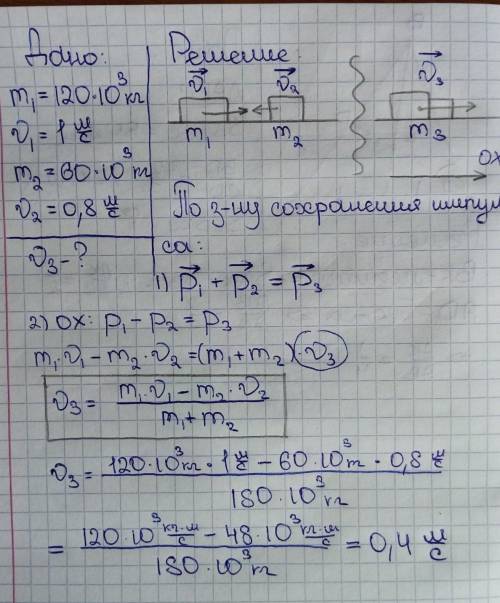 Дано:
m₁=120·10³кг
v₁=1 м/с
m₂=60·10³т
v₂=0,8 м/с
v₃-?
Решение:
v⃗₁ v⃗₂ v⃗₃
m₁ m₂ m₃
ОХ
По з-ну сохранения импуль
са:
1) p⃗₁ + p⃗₂ = p⃗₃
2) ОХ: p₁ - p₂ = p₃
m₁·v₁ - m₂·v₂ = (m₁+m₂)·v₃
v₃ = (m₁·v₁ - m₂·v₂)/(m₁+m₂)
v₃ = (120·10³кг·1 м/с - 60·10³т·0,8 м/с)/(180·10³кг)
= (120·10³ кг·м/с - 48·10³ кг·м/с)/(180·10³кг) = 0,4 м/с